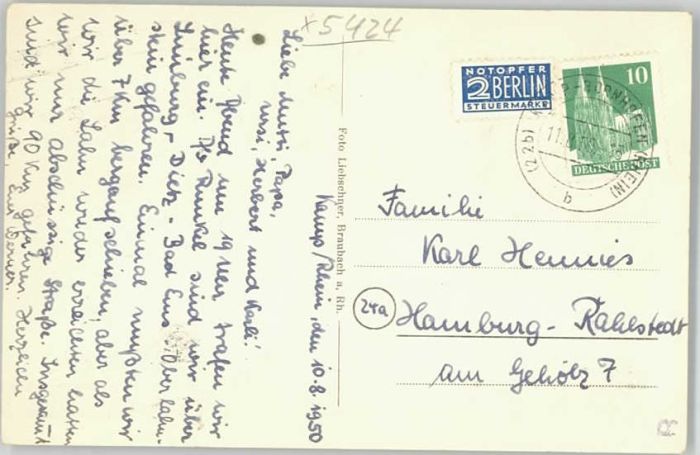 x 5424
Kamp/Rhein, den 10.8.1950
Liebe Mutti, Papa,
Herbert und Karli!
Heute Abend um 19 Uhr trafen wir
hier ein. Per Runkel sind wir über
Limburg - Dietz - Bad Ems - Ober Lahn-
stein gefahren. Einmal mußten wir
über 7 Km bergauf schieben, aber als
wir die Lahn wieder erreichten hatten
wir nur abschüssige Straße. Insgesamt
sind wir 90 Km gefahren. Herzliche
Grüße, Euer Werner.
Foto Liebschner, Braubach a. Rh.
NOTOPFER
2 BERLIN
STEUERMARKE
10
DEUTSCHE POST
(22b) KAMP-BORNHOFEN (RHEIN)
b
Familie
Karl Hennies
24a Hamburg-Rahlstedt
am Gehölz 7